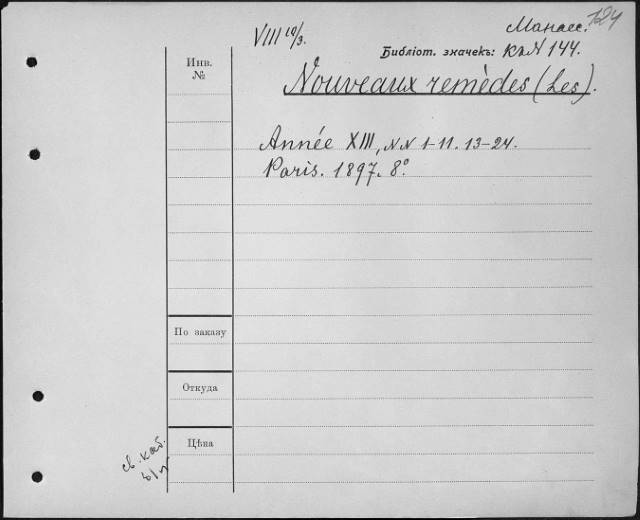 124
Манасс.
VIII 10/3.
Библіот. значекъ: КлN 144.
Инв.
№
Nouveaux remèdes (Les).
Année XIII, NN 1-11. 13-24.
Paris. 1897. 8°.
По заказу
Откуда
Цѣна
св. каб.